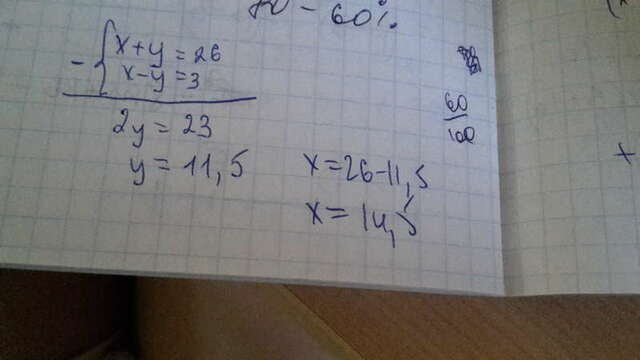 - { x+y=26
x-y=3
2y = 23
y = 11,5
x=26-11,5
x= 14,5
- 60%
60
100
x